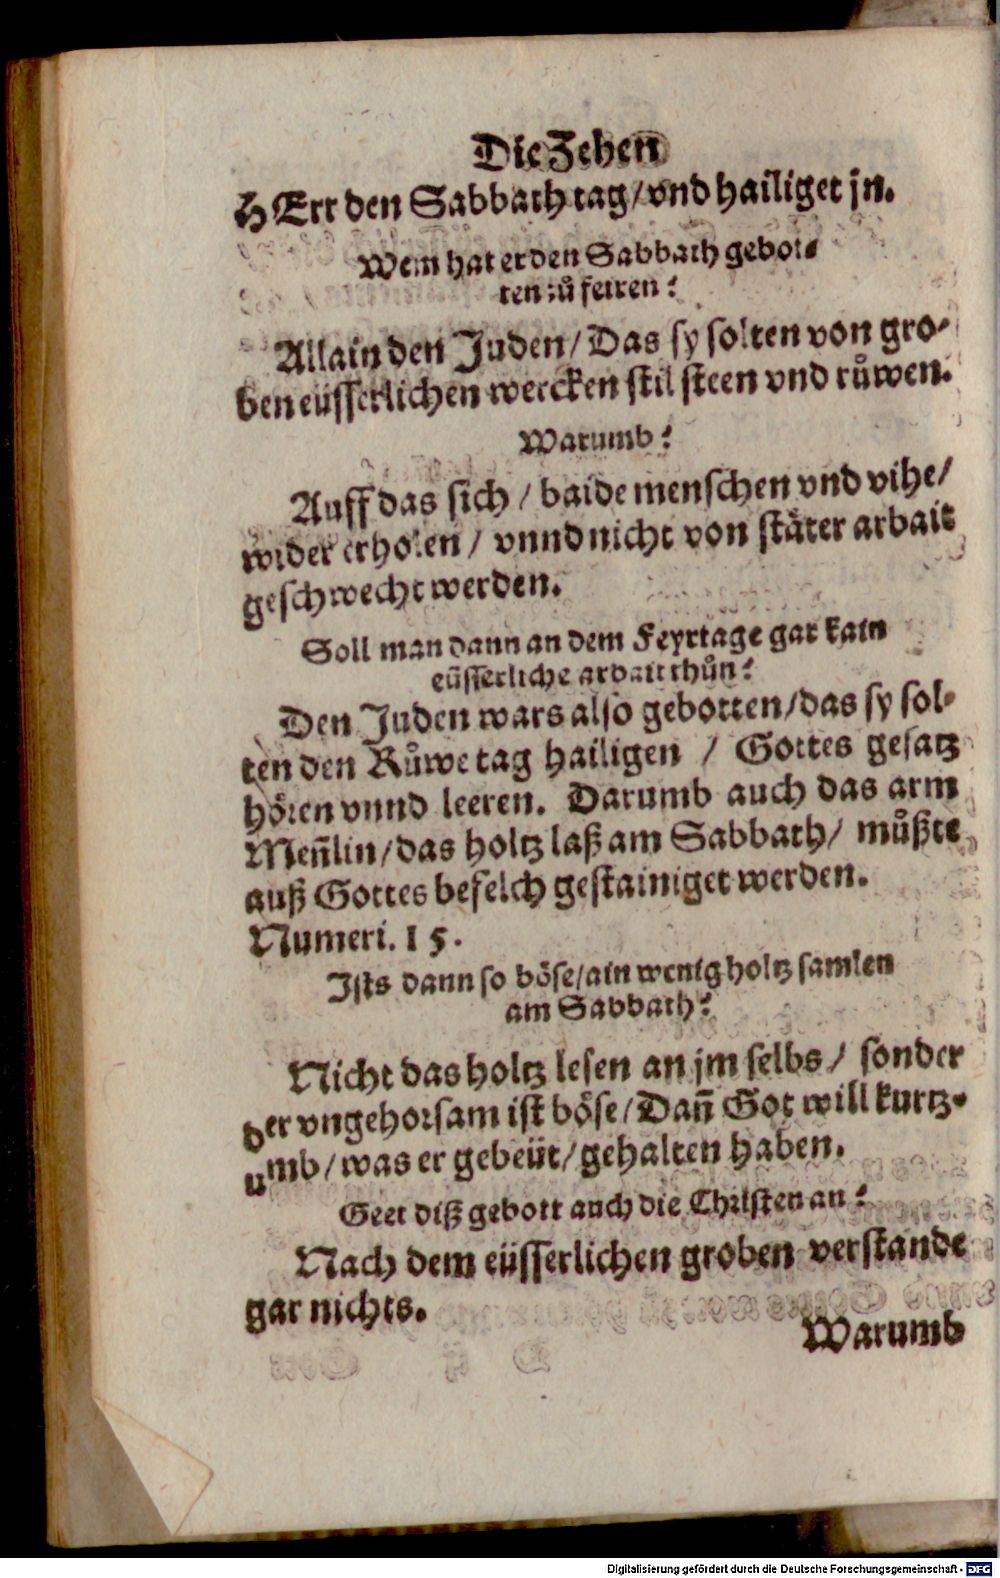 Die Zehen
HErr den Sabbath tag/vnd hailiget jn.
Wem hat er den Sabbath gebot⸗
ten zů feiren?
Allain den Juden/Das sy solten von gro⸗
ben eüsserlichen wercken stil steen vnd růwen.
Warumb?
Auff das sich / baide menschen vnd vihe/
wider erholen / vnnd nicht von stäter arbait
geschwecht werden.
Soll man dann an dem Feyrtage gar kain
eüsserliche arbait thůn?
Den Juden wars also gebotten/das sy sol⸗
ten den Růwe tag hailigen / Gottes gesatz
hören vnnd leeren. Darumb auch das arm
Men̄lin/das holtz laß am Sabbath/ můßte
auß Gottes befelch gestainiget werden.
Numeri. 15.
Ists dann so böse/ain wenig holtz samlen
am Sabbath?
Nicht das holtz lesen an jm selbs / sonder
der vngehorsam ist böse/Dan̄ Got will kurtz⸗
umb/was er gebeüt/gehalten haben.
Geet diß gebott auch die Christen an?
Nach dem eüsserlichen groben verstande
gar nichts.
Warumb
Digitalisierung gefördert durch die Deutsche Forschungsgemeinschaft - DFG